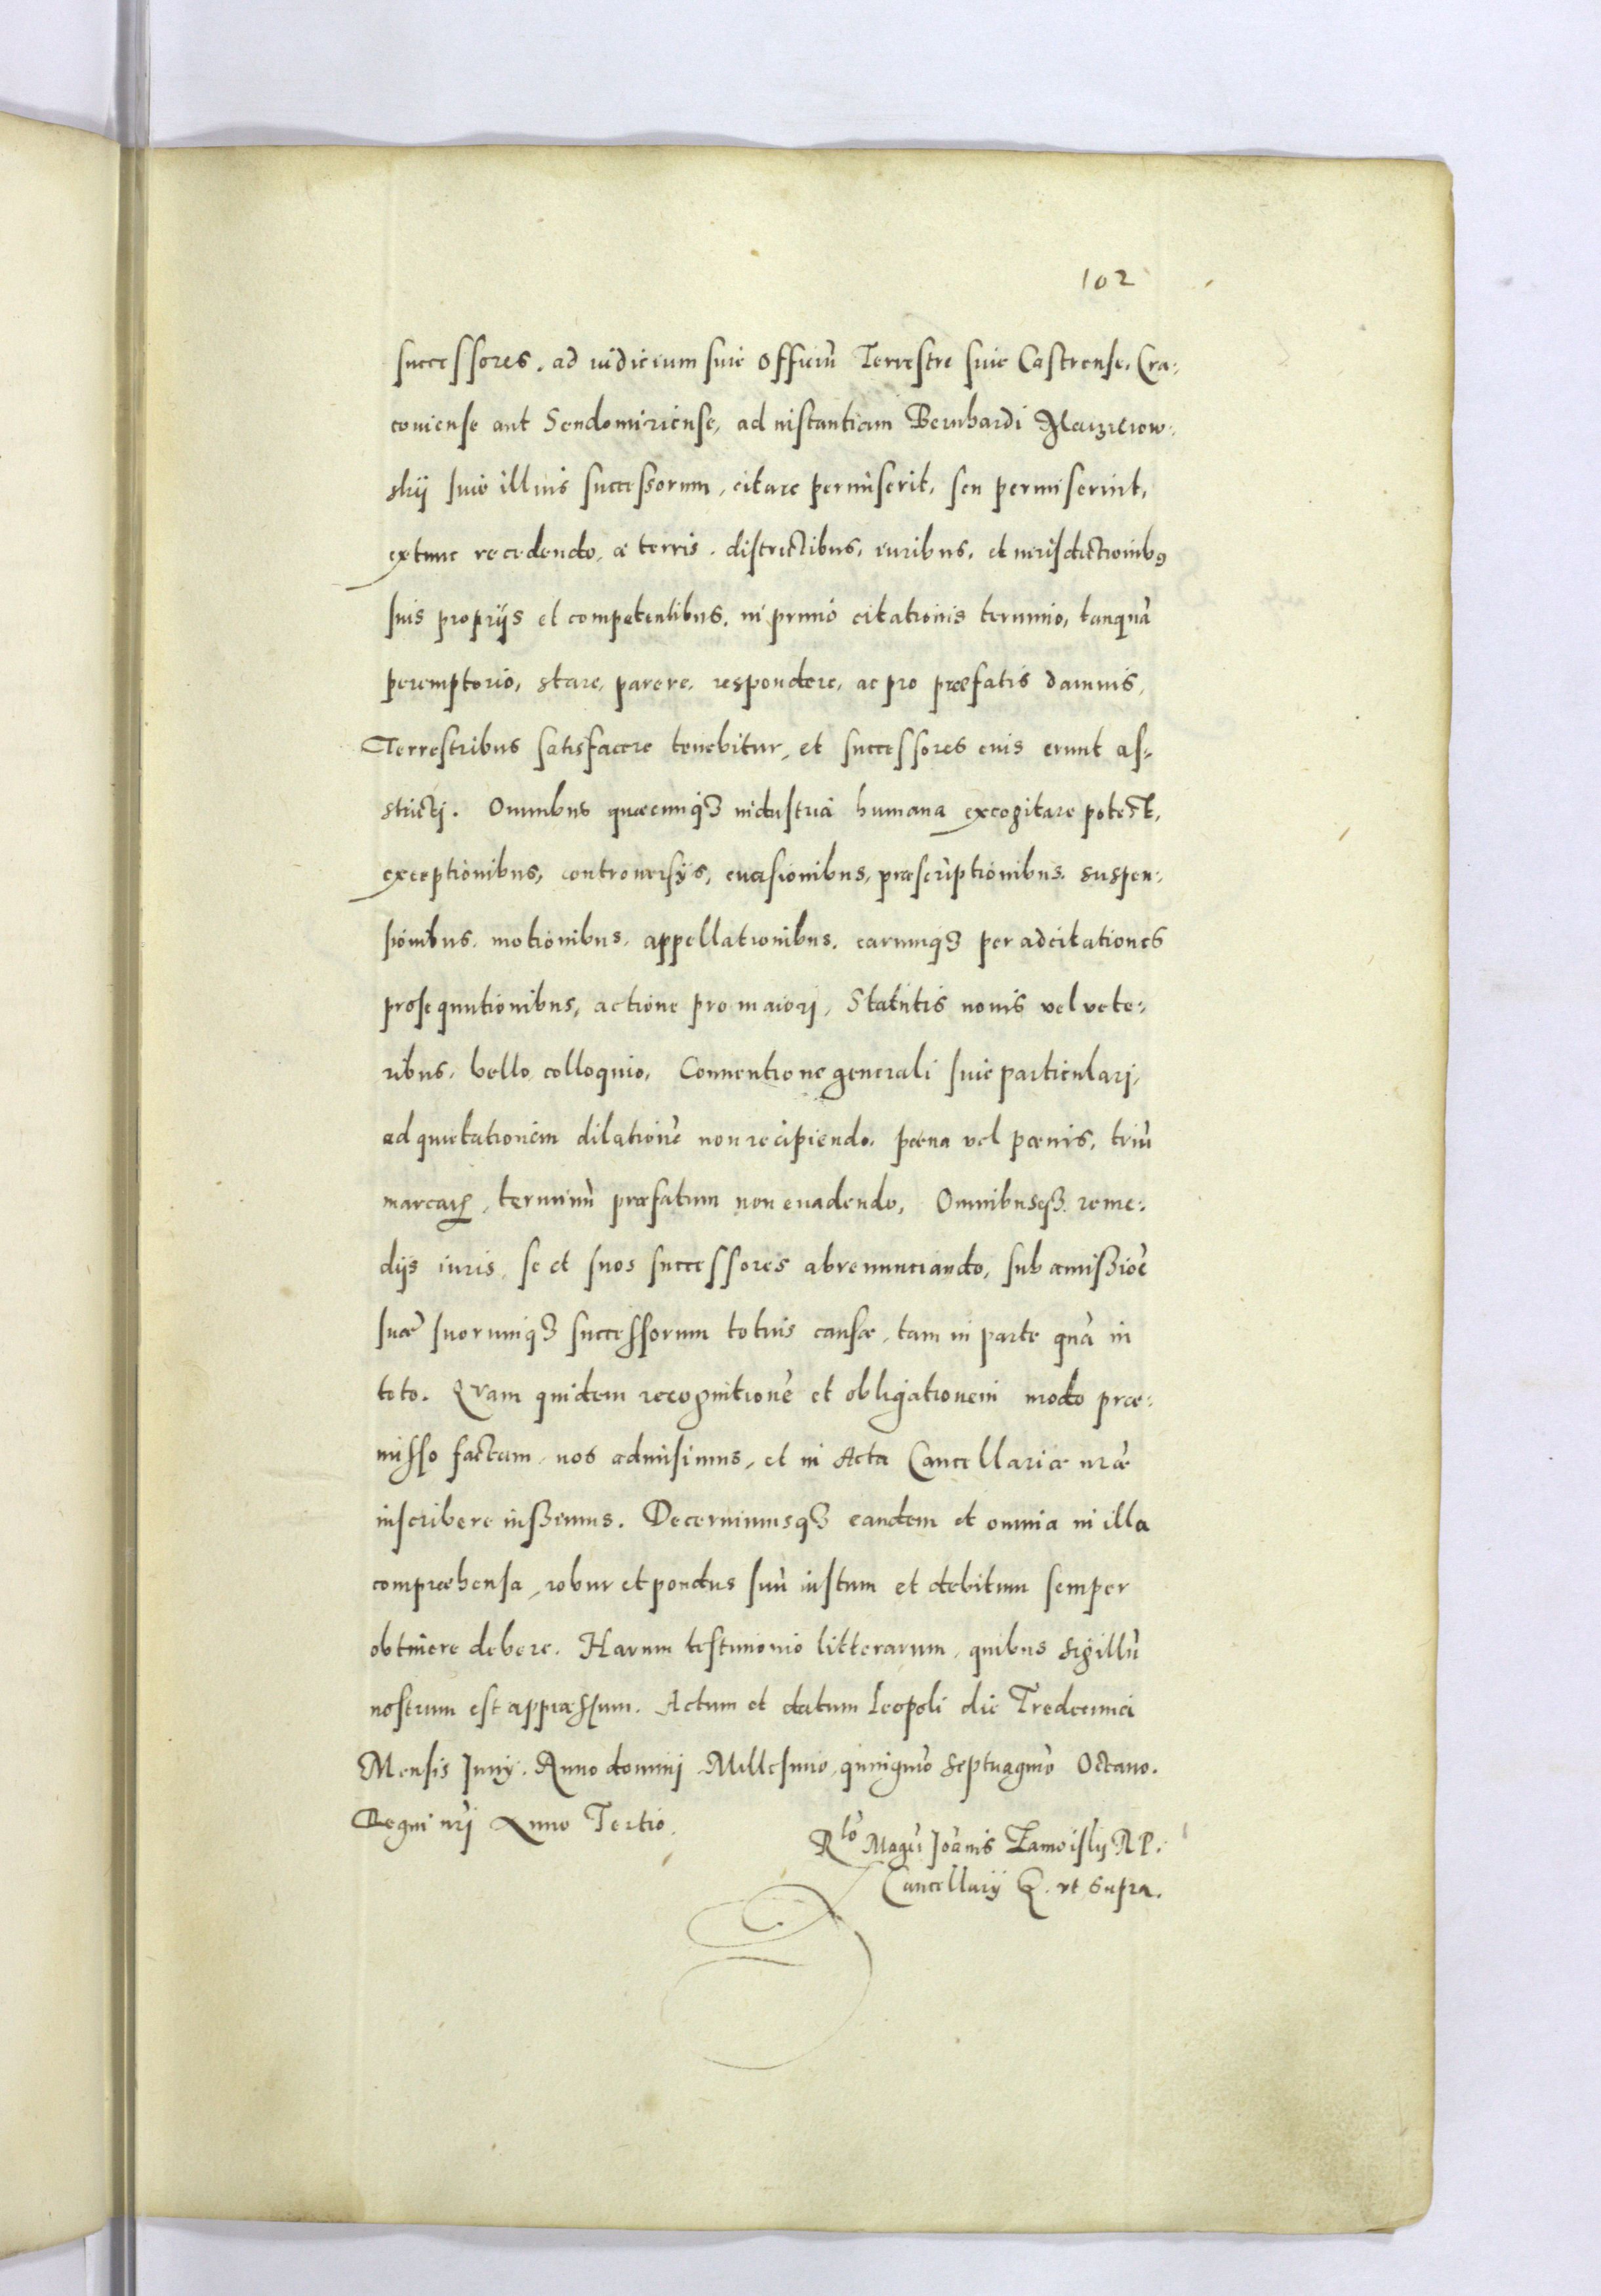 102
successores, ad iudicium siue officiũ Terrestre siue Castrense, Cra:
couiense aut Sendomiriense, ad instantiam Bernhardi
skij siue illius successorum, citare permiserit, seu permiserint,
extunc recedendo, a terris, districtibus, iuribus, et iurisdictionibꝰ
suis proprijs et competentibus, in primo citationis termino, tanquã
peremptorio, stare, parere, respondere, ac pro præfatis damnis,
Terrestribus satisfacere tenebitur, et successores eius erunt as:
stricti. Omnibus quæcunqꝫ industria humana excogitare potest,
exceptionibus, controuersijs, euasionibus, præscriptionibus, suspen:
sionibus, motionibus, appellationibus, earumqꝫ per adcitationes
prosequutionibus, actione pro maiori, Statutis nouis vel vete:
ribus, bello, colloquio, Conuentione generali siue particulari,
ad quietationem dilationẽ non recipiendo, pœna vel pœnis, triũ
marcaꝝ, terminũ præfatum non euadendo, Omnibusqꝫ reme:
dijs iuris, se et suos successores abrenunciando, sub amissiõe
suæ suorumqꝫ successorum totius causæ, tam in parte quã in
toto. Quam quidem recognitionẽ et obligationem modo præ:
misso factam, nos admisimus, et in Acta Cancellariæ nr̃æ
inscribere iussimus. Decernimusqꝫ eandem et omnia in illa
compræhensa, robur et pondus suũ iustum et debitum semper
obtinere debere. Harum testimonio litterarum, quibus sigillũ
nostrum est appræssum. Actum et datum Leopoli die Tredecima
Mensis Junij. Anno domini Millesimo, quingm̃o septuagm̃o Octauo.
Regni nr̃i Anno Tertio.
Rlo Magci Joãnis Zamoiskij R P.
Cancellarij &. vt supra.